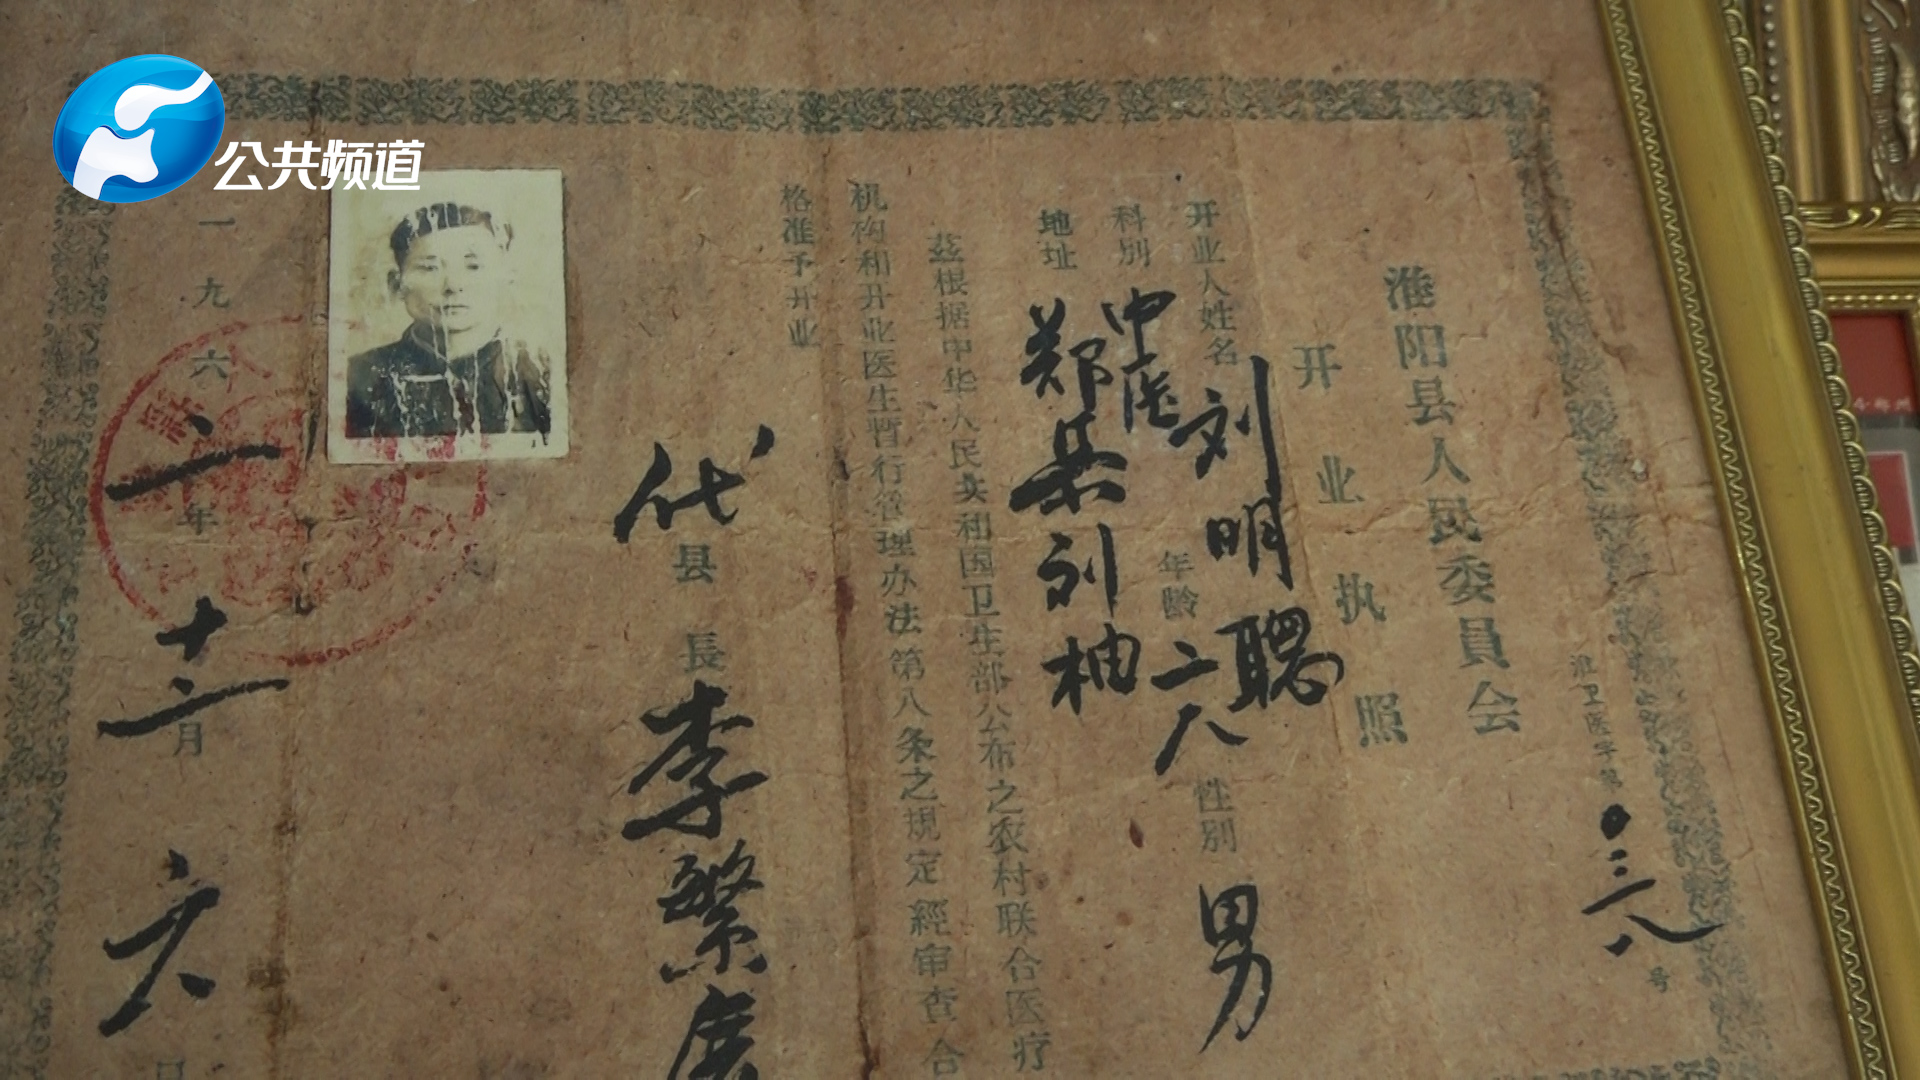 公共频道
淮卫医字第〇三八号
淮阳县人民委員会
开业执照
开业人姓名 刘明聪
科别 中医 年龄 二八 性别 男
地址 郑集刘柚
茲根据中华人民共和国卫生部公布之农村联合医疗
机构和开业医生暂行管理办法第八条之規定經审查合
格准予开业
代县長李繁
一九六二年十二月六日